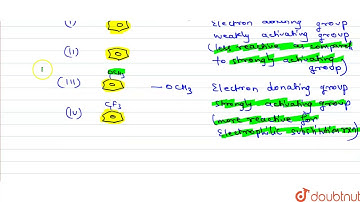 (i) Electron donating group
weakly activating group
(ii) (less reactive as compared
to strongly activating
group)
OCH3
(iii) —OCH3 Electron donating group
CF3 strongly activating group
(iv) (more reactive for
Electrophilic substitution rxn)
doubtnut